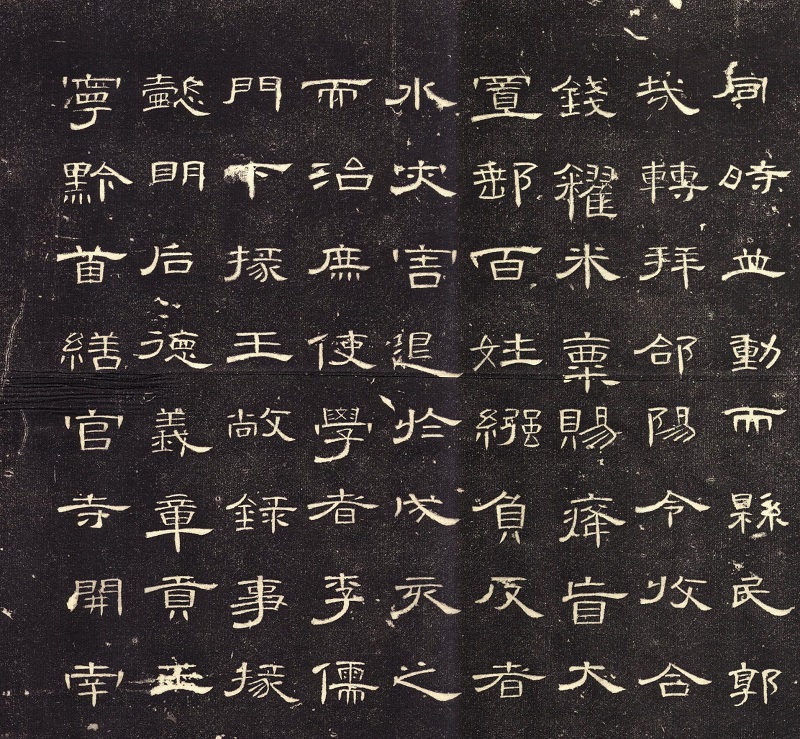 同時並動而縣民郭
哉轉拜郃陽令收合
錢糴米粟賜癃盲大
置郵百姓繈負反者
水灾害退於戌亥之
而治庶使學者李儒
門下掾王敞録事掾
懿明后德義章貢王
寧黔首繕官寺開南